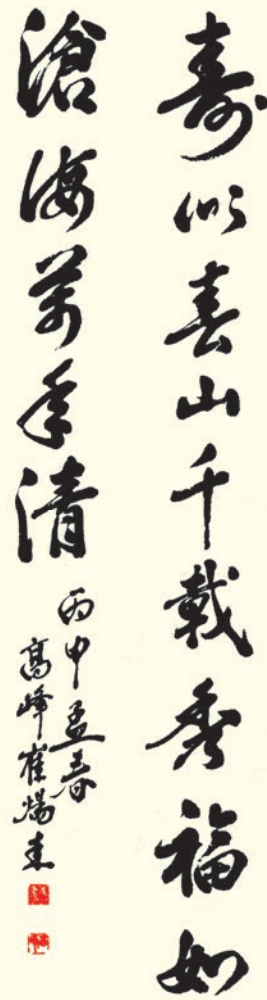 壽似春山千載秀福如
滄海万年清
丙申孟春
高峰崔炳圭